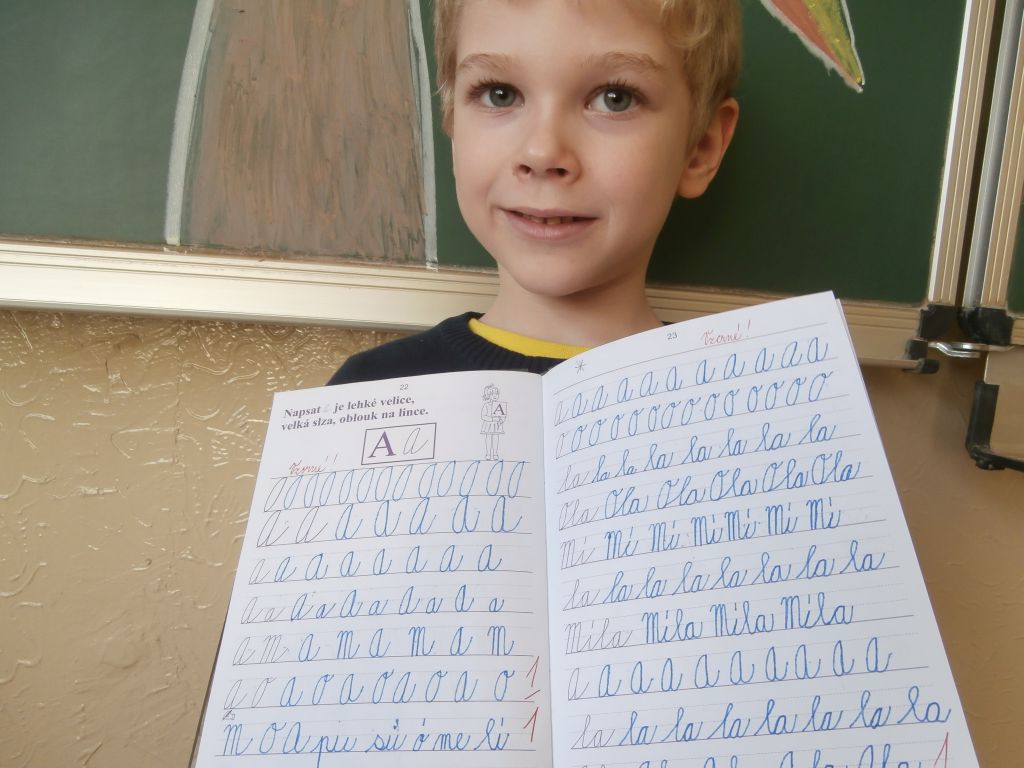 22
Napsat a je lehké velice,
velká slza, oblouk na lince.
A
A a
Vzorné!!
O O O O O O O O O O O O
A A A A A A A
a a a a a a a a
A a A a A a A a A a
a m a m a m a m
a o a o a o a o a o 1
m o a pu sú ó me lí 1
23
Vzorné!
*
a a a a a a a a a
o o o o o o o o o o o
la la la la la la la la
Ola Ola Ola Ola Ola Ola
Mi Mi Mi Mi Mi Mi
la la la la la la la la
Míla Míla Míla Míla
a a a a a a a a a
la la la la la la la la
1